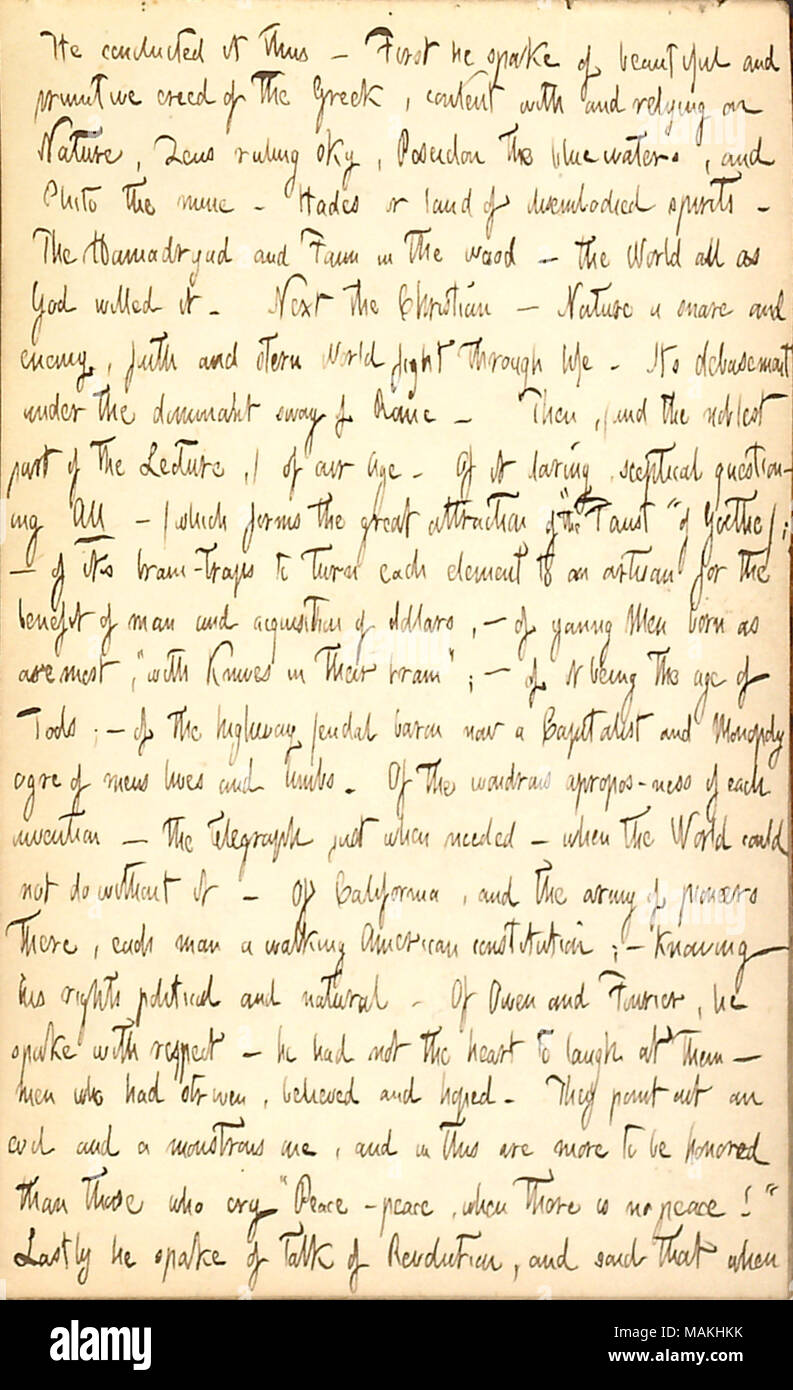 He conducted it thus – First he spake of beautiful and
primitive creed of the Greek, content with and relying on
Nature, Zeus ruling sky, Poseidon the blue waters, and
Pluto the mine – Hades or land of disembodied spirits –
The Hamadryad and Faun in the wood – the World all as
God willed it – Next the Christian – Nature a snare and
enemy, faith and stern World fight through life – Its debasement
under the dominant sway of Rome – Then, (and the noblest
part of the Lecture,) of our Age – Of it daring, sceptical question-
ing All – (which forms the great attraction of "the Faust" of Goethe);
– of its brain-traps to turn each element to an artisan for the
benefit of man and acquisition of dollars, – of young Men born as
are most, "with Knives in their brain"; – of it being the age of
Tools; – of the highway feudal baron now a Capitalist and Monopoly
ogre of mens lives and limbs. Of the wondrous apropos-ness of each
invention – the Telegraph just when needed – when the World could
not do without it – Of California, and the army of pioneers
there, each man a walking American constitution; – Knowing
his rights political and natural – Of Owen and Fourier, he
spake with respect – he had not the heart to laugh at them –
men who had striven, believed and hoped – They point out an
evil and a monstrous one, and in this are more to be honored
than those who cry "Peace – peace, when there is no peace!"
Lastly he spake of Talk of Revolution, and said that when
alamy
Image ID: MAKHKK
www.alamy.com